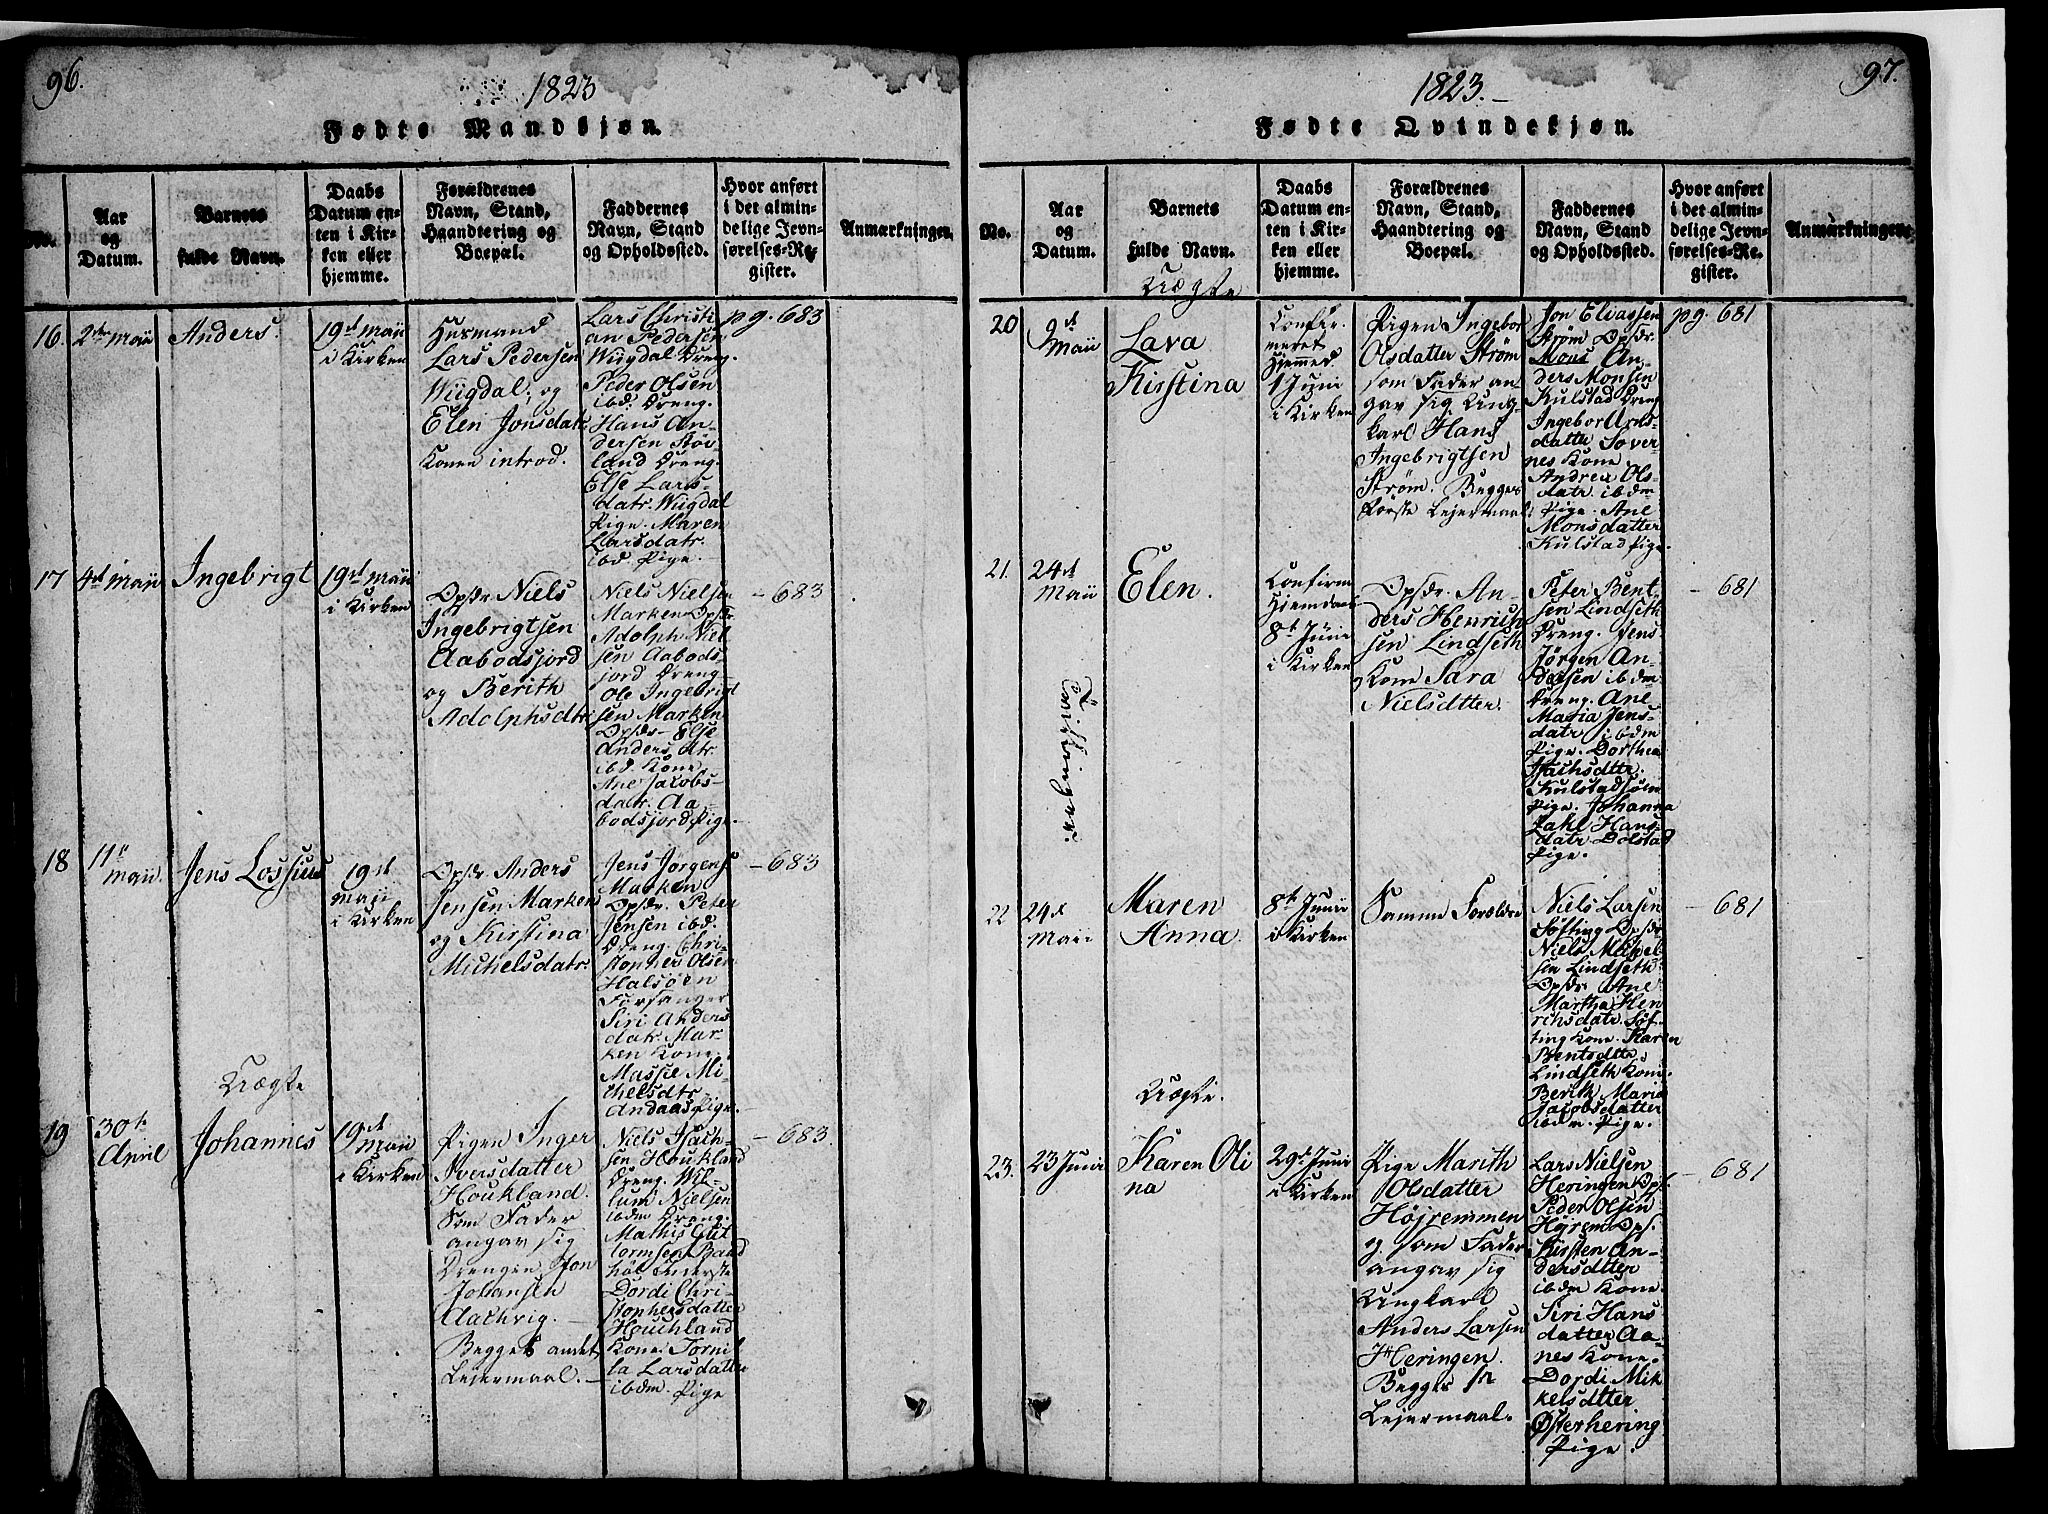 96.
1823
Fødte Mandkjøn.
No.
Aar
og
Datum.
Barnets
fulde Navn.
Daabs
Datum en-
ten i Kir-
ken eller
hjemme.
Forældrenes
Navn, Stand,
Haandtering og
Boepæl.
Faddernes
Navn, Stand
og Opholdssted.
Hvor anført
i det almin-
delige Jevn-
førelses-Re-
gister.
Anmærkninger.
16.
2den Maii
Anders.
19de Maii
i Kirken
Husmand
Lars Pedersen
Wiigdal, og
Elen Jonsdatr
Konen introd.
Lars Christi
an Pedersen
Wiigdal Dreng.
Peder Olsen
ibd. Dreng.
Hans An-
dersen Støv-
land Dreng.
Else Lars-
datr. Wiigdal
Pige. Maren
Larsdatr.
ibd. Pige.
pg. 683
17
4de Maii
Ingebrigt
19de Maii
i Kirken
Opsdr Niels
Ingebrigtsen
Aabodsjord
og Berith
Adolphsdtr
Niels Nielsen
Marken Opsdr
Adolph Niel
sen Aabods-
jord Dreng
Ole Ingebrigt
sen Marken
Opsdr- Else
Anders dtr.
ibd. Kone
Ane Jacobs-
datr. Aa-
bodsjord Pige.
- 683
18
11te
Maii.
Jens Lossius
19de
Maii
i Kirken
Opsdr Anders
Jensen Marken
og Kirstina
Michelsdatr.
Jens Jørgens
Marken
Opsdr. Peter
Jensen ibd.
Dreng. Chri-
stopher Olsen
Halsøen
Forsanger
Siri Anders
datr. Mar-
ken Kone.
Masse Mi-
chelsdtr
Andaas Pige.
- 683
Uægte
19
30te
April
Johannes
19de
Maii
i Kirken
Pigen Inger
Iversdatter
Houkland.
Som Fader
angav sig
Drengen Jon
Johansen
Begges andet
Lejermaal.
Niels Isach-
sen Houkland
Dreng. Wil-
lum Nielsen
ibdm Dreng.
Mathis Gut
tormsen Band
Dordi Chri-
stophersdatter
Houchland
Kone. Tornil
la Larsdatter
ibdm. Pige
- 683.
97.
1823.-
Fødte Qvindekjøn.
No.
Aar
og
Datum.
Barnets
fulde Navn.
Daabs
Datum en-
ten i Kir-
ken eller
hjemme.
Forældrenes
Navn, Stand,
Haandtering og
Boepæl.
Faddernes
Navn, Stand
og Opholdssted.
Hvor anført
i det almin-
delige Jevn-
førelses-Re-
gister.
Anmærkninger.
Uægte
20
9de
Maii
Lava
Kirstina
Confir-
meret
Hjemmed.
1 Juni
i Kirken
Pigen Ingebor
Olsdatter Strøm
som Fader an
gav sig Ung-
karl Hans
Ingebrigtsen
Strøm. Begges
første Lejermaal
Jon Eliassen
Strøm Opsdr.
Mons An-
ders Monsen
Kulstad Dreng
Ingebor Arns-
datter Søver-
nes Kone
Andrea Ols-
datr. ibdm
Pige. Ane
Monsdatter
Kulstad Pige.
pg. 681
21.
24de
Maii
Tvillinger
Elen.
Confirm
Hjemdaab
8de Juni
i Kirken
Opsdr. An-
ders Henrich
sen Lindseth
Kone Sara
Nielsdtter.
Peter Bent-
sen Lindseth
Dreng. Jens
Jørgen An-
dersen ibdm
Dreng. Ane
Maria Jens-
datr ibdm
Pige. Dorthea
Isachsdtter.
Pige. Johanna
Zahl Hans-
datr Dolstad
Pige.
- 681
22
24de
Maii
Maren
Anna.
8de Junii
i Kirken
Samme Forældre
Niels Larsen
Søfting Opsdr
Niels Mikkel
sen Lindseth
Opsdr. Ane
Martha Hen
richsdatr. Søf-
ting Kone. Karen
Bentsdtte
Lindseth Kone.
Berith Maria
Jacobsdatter
ibdm. Pige.
- 681
Uægte.
23.
23 Junii
Karen Oli
na
29de Junii
i Kirken
Pige Marith
Olsdatter
Højremmen
og som Fader
angav sig
Ungkarl
Anders Larsen
Heringen.
Begges 1ste
Lejermaal.
Lars Nielsen
Heringen Ops.
Peder Olsen
Højrem Ops.
Kirsten An-
dersdtter
ibdm Kone.
Siri Hans-
datter Aa-
nes Kone.
Dordi Mik
kelsdtter
Østerhering
Pige.
- 681